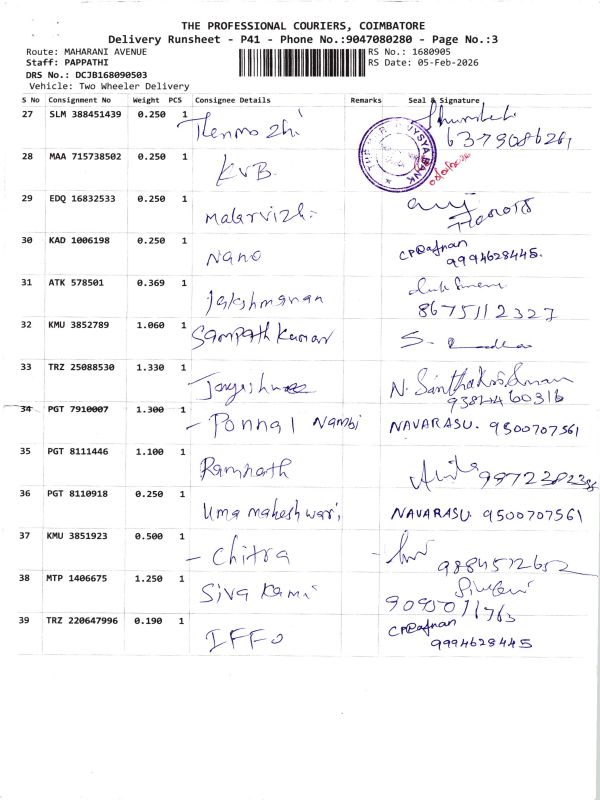 THE PROFESSIONAL COURIERS, COIMBATORE
Delivery Runsheet - P41 - Phone No.:9047080280 - Page No.:3
Route: MAHARANI AVENUE RS No.: 1680905
Staff: PAPPATHI RS Date: 05-Feb-2026
DRS No.: DCJB168090503
Vehicle: Two Wheeler Delivery
S No Consignment No Weight PCS Consignee Details Remarks Seal & Signature
27 SLM 388451439 0.250 1 Thenmozhi
6379086261
28 MAA 715738502 0.250 1 KVB
29 EDQ 16832533 0.250 1 Malarvizhi
30 KAD 1006198 0.250 1 Nano CP@afnan
9994628445.
31 ATK 578501 0.369 1 Jakshmanan
8675112327
32 KMU 3852789 1.060 1 Sampath Kumar S.
33 TRZ 25088530 1.330 1 N. Santhakrishnan
9384460316
34 PGT 7910007 1.300 1 - Ponnal Nambi NAVARASU. 9500707561
35 PGT 8111446 1.100 1 Ramnath
36 PGT 8110918 0.250 1 Uma maheshwari, NAVARASU. 9500707561
37 KMU 3851923 0.500 1 - Chitra
9884512652
38 MTP 1406675 1.250 1 Siva Kami
9095011763
39 TRZ 220647996 0.190 1 IFFO CP@afnan
9994628445